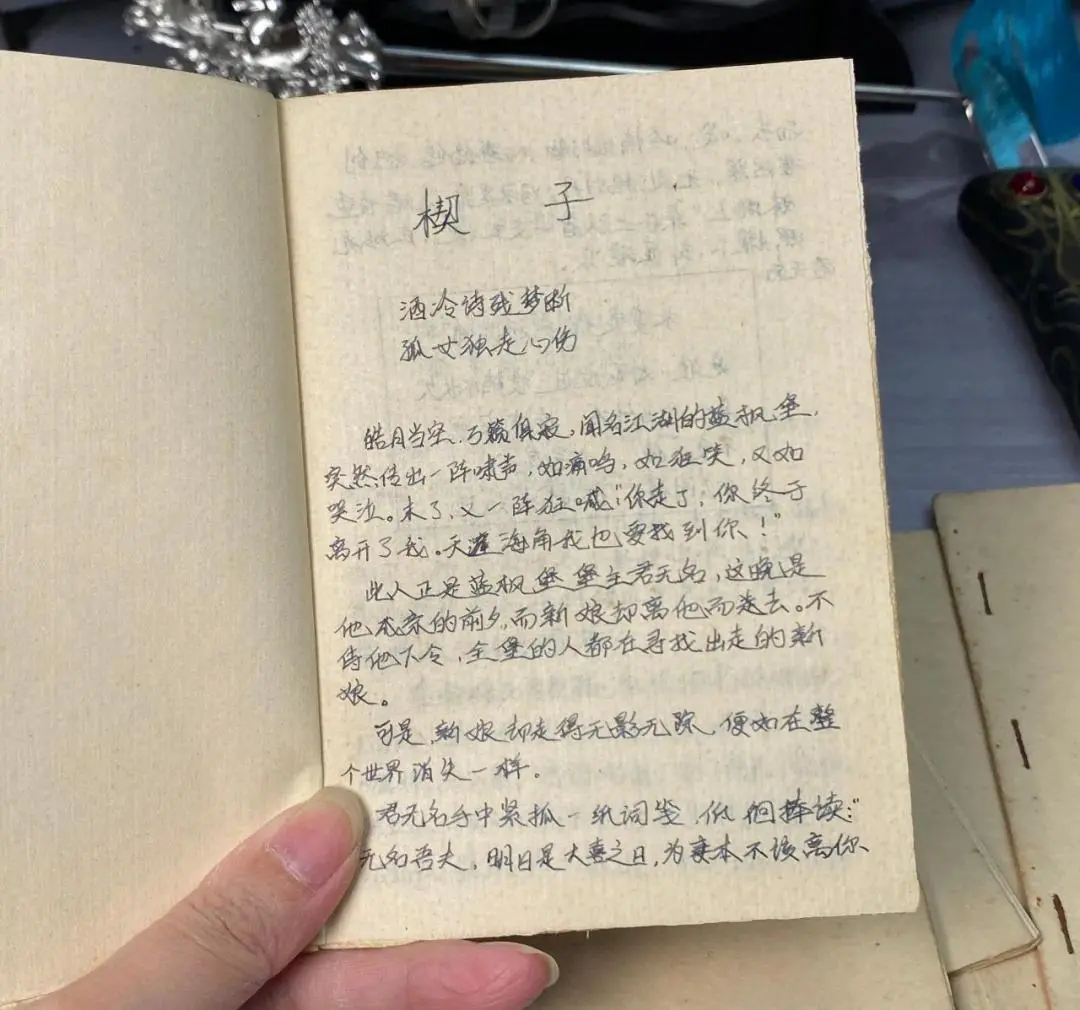 楔 子
酒冷诗残梦断
孤女独走心伤
皓月当空、万籁俱寂,闻名江湖的蓝枫堡,
突然传出一阵啸声,如痛鸣,如狂笑,又如
哭泣。末了,又一阵狂喊“你走了,你终于
离开了我。天涯海角我也要找到你!”
此人正是蓝枫堡堡主君无名,这晚是
他成亲的前夕,而新娘却离他而去。不
待他下令,全堡的人都在寻找出走的新
娘。
可是,新娘却走得无影无踪,便如在整
个世界消失一样。
君无名手中紧抓一纸词笺,低徊捧读:“
无名吾夫,明日是大喜之日,为妻本不该离你